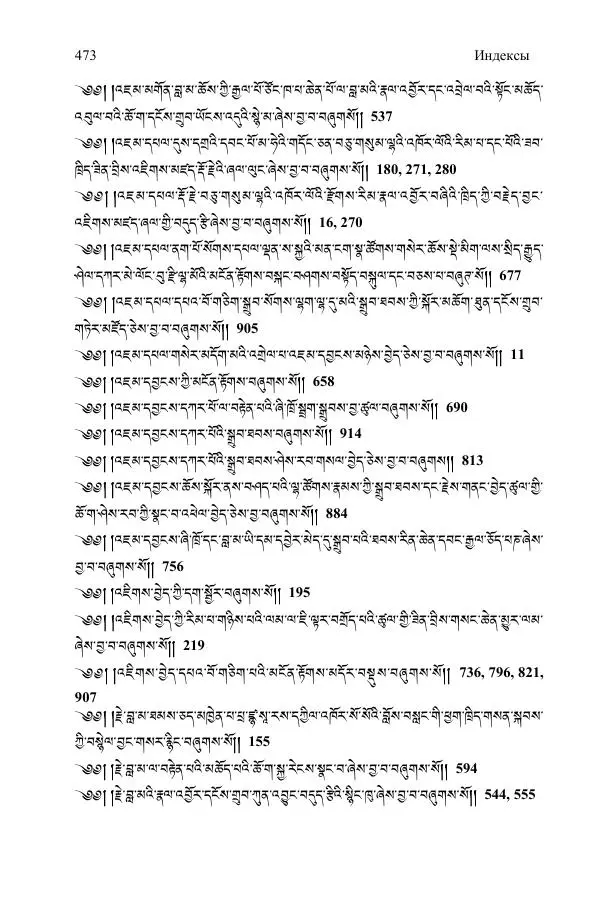 473 Индексы
༄༅། །འཇམ་མགོན་བླ་མ་ཆོས་ཀྱི་རྒྱལ་པོ་ཙོང་ཁ་པ་ཆེན་པོ་ལ་བླ་མའི་རྣལ་འབྱོར་དང་འབྲེལ་བའི་སྟོང་མཆོད་
འབུལ་བའི་ཆོ་ག་དངོས་གྲུབ་ཡོངས་འདུའི་སྙེ་མ་ཞེས་བྱ་བ་བཞུགས་སོ།། 537
༄༅། །འཇམ་དཔལ་དུས་དགྲའི་དབང་པོ་མ་ཧེའི་གདོང་ཅན་བཅུ་གསུམ་ལྷའི་འཁོར་ལོའི་རིམ་པ་དང་པོའི་ཟབ་
ཁྲིད་ཟིན་བྲིས་འཇིགས་མཛད་རྡོ་རྗེའི་ཞལ་ལུང་ཞེས་བྱ་བ་བཞུགས་སོ།། 180, 271, 280
༄༅། །འཇམ་དཔལ་རྡོ་རྗེ་བཅུ་གསུམ་ལྷའི་འཁོར་ལོའི་རྫོགས་རིམ་རྣལ་འབྱོར་བཞིའི་ཁྲིད་ཀྱི་བརྗེད་བྱང་
འཇིགས་མཛད་ཞལ་གྱི་བདུད་རྩི་ཞེས་བྱ་བ་བཞུགས་སོ།། 16, 270
༄༅། །འཇམ་དཔལ་ནག་པོ་སོགས་དཔལ་ལྡན་ས་སྐྱའི་མན་ངག་སྣ་ཚོགས་གསེར་ཆོས་སྡེ་མིག་ལས་སྲིད་རྒྱུད་
ཤེལ་དཀར་མེ་ལོང་བྲུ་རྫི་ལྷ་མོའི་མངོན་རྟོགས་བསྐང་བཤགས་བསྟོད་བསྐུལ་དང་བཅས་པ་བཞུགས་སོ།། 677
༄༅། །འཇམ་དཔལ་དཔའ་བོ་གཅིག་སྒྲུབ་སོགས་ལྷག་ལྷ་དུ་མའི་སྒྲུབ་ཐབས་ཀྱི་སྐོར་མཆོག་ཐུན་དངོས་གྲུབ་
གཏེར་མཛོད་ཅེས་བྱ་བ་བཞུགས་སོ།། 905
༄༅། །འཇམ་དཔལ་གསེར་མདོག་མའི་འགྲེལ་པ་འཇམ་དབྱངས་མཉེས་བྱེད་ཅེས་བྱ་བ་བཞུགས་སོ།། 11
༄༅། །འཇམ་དབྱངས་ཀྱི་མངོན་རྟོགས་བཞུགས་སོ།། 658
༄༅། །འཇམ་དབྱངས་དཀར་པོ་ལ་བརྟེན་པའི་ཞི་ཁྲོ་སྦྲག་སྒྲུབས་བྱ་ཚུལ་བཞུགས་སོ།། 690
༄༅། །འཇམ་དབྱངས་དཀར་པོའི་སྒྲུབ་ཐབས་བཞུགས་སོ།། 914
༄༅། །འཇམ་དབྱངས་དཀར་པོའི་སྒྲུབ་ཐབས་ཤེས་རབ་གསལ་བྱེད་ཅེས་བྱ་བ་བཞུགས།། 813
༄༅། །འཇམ་དབྱངས་ཆོས་སྐོར་ནས་བཤད་པའི་ལྷ་ཚོགས་རྣམས་ཀྱི་སྒྲུབ་ཐབས་དང་རྗེས་གནང་བྱེད་ཚུལ་གྱི་
ཆོ་ག་ཤེས་རབ་ཀྱི་སྣང་བ་འཕེལ་བྱེད་ཅེས་བྱ་བ་བཞུགས་སོ།། 884
༄༅། །འཇམ་དབྱངས་ཞི་ཁྲོ་དང་བླ་མ་ཡི་དམ་དབྱེར་མེད་དུ་སྒྲུབ་པའི་ཐབས་རིན་ཆེན་དབང་རྒྱལ་ཅོད་པཎ་ཞེས་
བྱ་བ་བཞུགས་སོ།། 756
༄༅། །འཇིགས་བྱེད་ཀྱི་དག་སྦྱོར་བཞུགས་སོ།། 195
༄༅། །འཇིགས་བྱེད་ཀྱི་རིམ་པ་གཉིས་པའི་ལམ་ལ་ཇི་ལྟར་བགྲོད་པའི་ཚུལ་གྱི་ཟིན་བྲིས་གསང་ཆེན་མྱུར་ལམ་
ཞེས་བྱ་བ་བཞུགས་སོ།། 219
༄༅། །འཇིགས་བྱེད་དཔའ་བོ་གཅིག་པའི་མངོན་རྟོགས་མདོར་བསྡུས་བཞུགས་སོ།། 736, 796, 821,
907
༄༅། །རྗེ་བླ་མ་ཐམས་ཅད་མཁྱེན་པ་པྲ་ཛྙཱ་སཱ་རས་དཀྱིལ་འཁོར་སོ་སོའི་བློས་བསླང་གི་ཕྱག་ཁྲིད་གསན་སྐབས་
ཀྱི་བསྙེལ་བྱང་གསར་རྙིང་བཞུགས་སོ།། 155
༄༅། །རྗེ་བླ་མ་ལ་བརྟེན་པའི་མཆོད་པའི་ཆོ་ག་སྐྱ་རེངས་སྣང་བ་ཞེས་བྱ་བ་བཞུགས་སོ།། 594
༄༅། །རྗེ་བླ་མའི་རྣལ་འབྱོར་དངོས་གྲུབ་ཀུན་འབྱུང་བདུད་རྩིའི་སྙིང་ཁུ་ཞེས་བྱ་བ་བཞུགས་སོ།། 544, 555